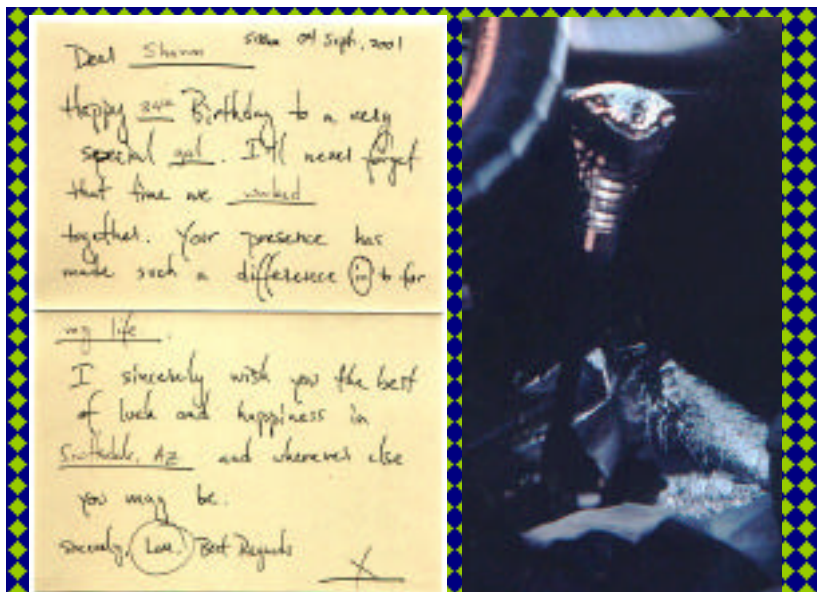 Dear Sharon 04 Sept, 2001
Happy 34th Birthday to a very
special gal. I'll never forget
that time we worked
together. Your presence has
made such a difference in to for
my life.
I sincerely wish you the best
of luck and happiness in
Scottsdale, AZ and wherever else
you may be.
sincerely, Love, Best Regards
X